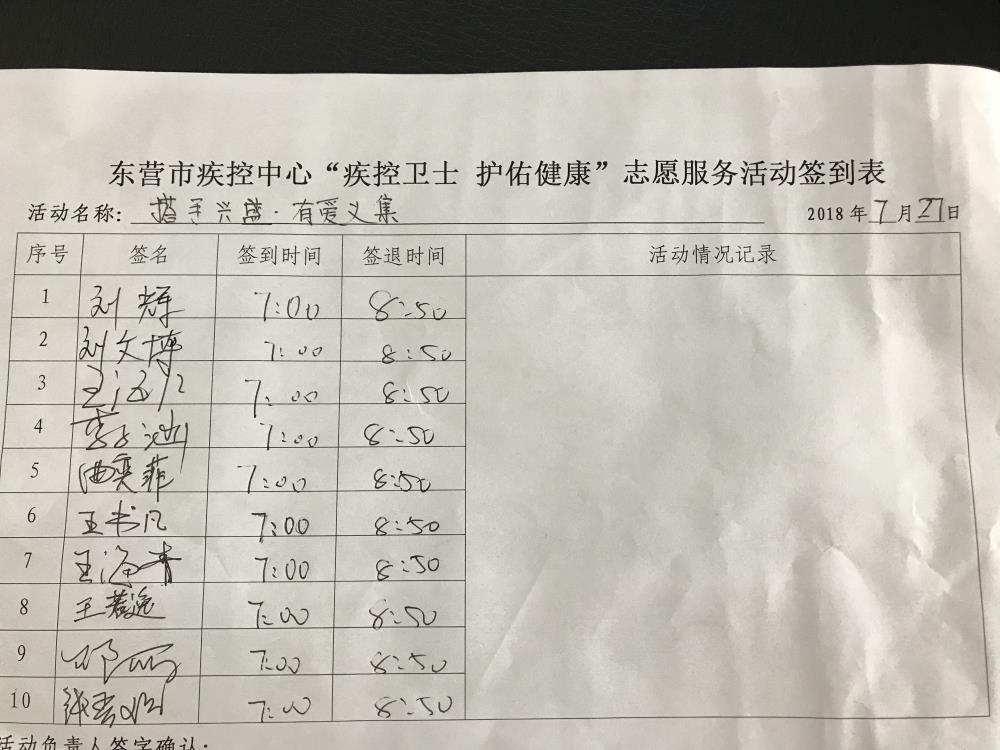 东营市疾控中心“疾控卫士 护佑健康”志愿服务活动签到表
活动名称: 搭手兴盛·有爱义集 2018年7月27日
序号 签名 签到时间 签退时间 活动情况记录
1 刘辉 7:00 8:50
2 刘文博 7:00 8:50
3 王 7:00 8:50
4 李 7:00 8:50
5 曲奕菲 7:00 8:50
6 王书凡 7:00 8:50
7 王海青 7:00 8:50
8 王若逸 7:00 8:50
9 7:00 8:50
10 7:00 8:50
活动负责人签字确认: